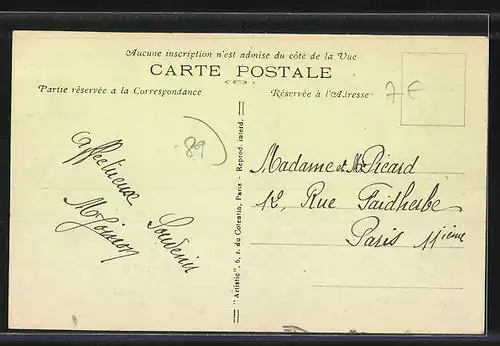 Aucune inscription n'est admise du côté de la Vue
CARTE POSTALE
Partie réservée a la Correspondance
Réservée à l'Adresse
7€
89
Affectueux
Souvenir
"Artistic". 6, r. du Cotentin, Paris - Reprod. interd.
Madame et Mr Picard
12, Rue Faidherbe
Paris 11ième